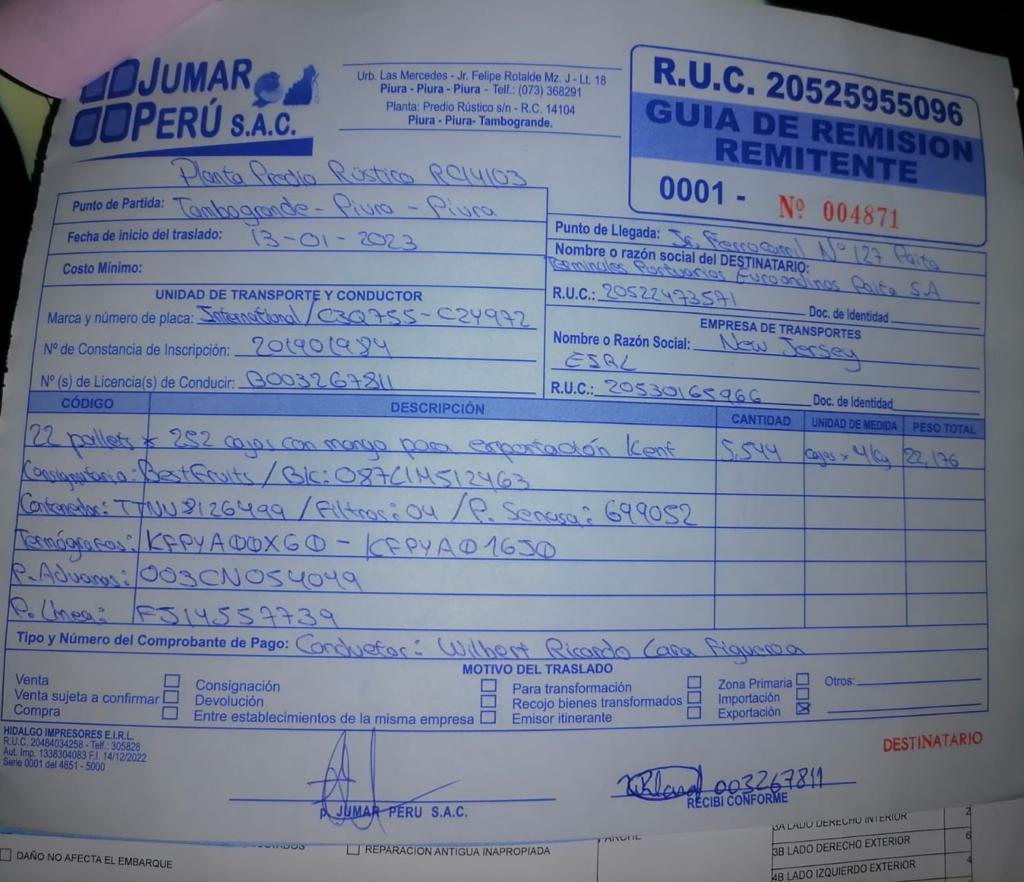 JUMAR
PERÚ S.A.C.
Urb. Las Mercedes - Jr. Felipe Rotalde Mz. J - Lt. 18
Piura - Piura - Piura - Telf.: (073) 368291
Planta: Predio Rústico s/n - R.C. 14104
Piura - Piura- Tambogrande.
R.U.C. 20525955096
GUIA DE REMISION
REMITENTE
0001 - Nº 004871
Planta Predio Rústico RC14103
Punto de Partida: Tambogrande - Piura - Piura
Fecha de inicio del traslado: 13-01-2023
Costo Mínimo:
Punto de Llegada: Jr. Ferrocarril Nº 127 Paita
Nombre o razón social del DESTINATARIO:
Terminales Portuarios Euroandinos Paita SA
R.U.C.: 20522473571 Doc. de Identidad
UNIDAD DE TRANSPORTE Y CONDUCTOR
Marca y número de placa: International / C3Q755 - C2Y972
Nº de Constancia de Inscripción: 201901984
Nº (s) de Licencia(s) de Conducir: B003267811
EMPRESA DE TRANSPORTES
Nombre o Razón Social: New Jersey
EIRL
R.U.C.: 20530165966 Doc. de Identidad
CÓDIGO DESCRIPCIÓN CANTIDAD UNIDAD DE MEDIDA PESO TOTAL
22 pallets x 252 cajas con mango para exportación Kent 5,544 cajas x 4 Kg 22,176
Consignatario: BestFruits / BK: 087LIM512463
Contenedor: TTNU8126499 / Filtros: 04 / P. Senasa: 699052
Termógrafos: KFPYA00XG0 - KFPYA01650
P. Aduanas: 003CN054049
P. Línea: FJ14557739
Tipo y Número del Comprobante de Pago: Conductor: Wilbert Ricardo Cara Figueroa
MOTIVO DEL TRASLADO
Venta
Venta sujeta a confirmar
Compra
Consignación
Devolución
Entre establecimientos de la misma empresa
Para transformación
Recojo bienes transformados
Emisor itinerante
Zona Primaria
Importación
Exportación X
Otros:
HIDALGO IMPRESORES E.I.R.L.
R.U.C. 20484034258 - Telf.: 305828
Aut. Imp. 1338304083 F.I. 14/12/2022
Serie 0001 del 4851 - 5000
p. JUMAR PERU S.A.C.
003267811
RECIBI CONFORME
DESTINATARIO
DAÑO NO AFECTA EL EMBARQUE
REPARACION ANTIGUA INAPROPIADA
3A LADO DERECHO INTERIOR 2
3B LADO DERECHO EXTERIOR 6
4B LADO IZQUIERDO EXTERIOR 4